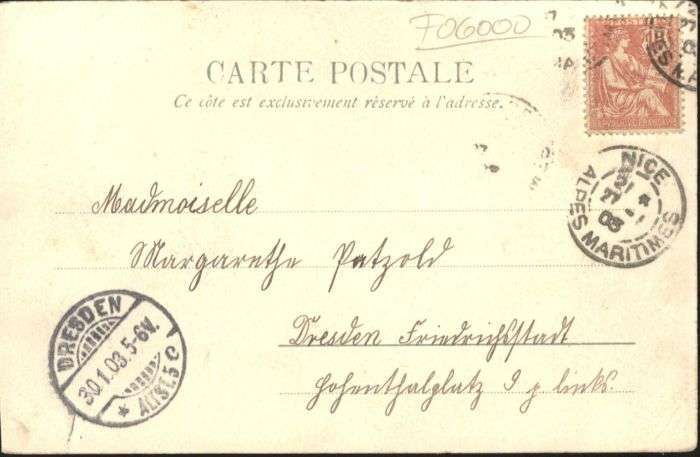 F06000
CARTE POSTALE
Ce côte est exclusivement réservé à l'adresse.
POSTES
NICE
27
03
ALPES MARITIMES
Mademoiselle
Margarethe Patzold
Dresden Friedrichsstadt
Hohenthalplatz 9 p links.
DRESDEN
30.1.03.5-6V.
* ALTST.5 C